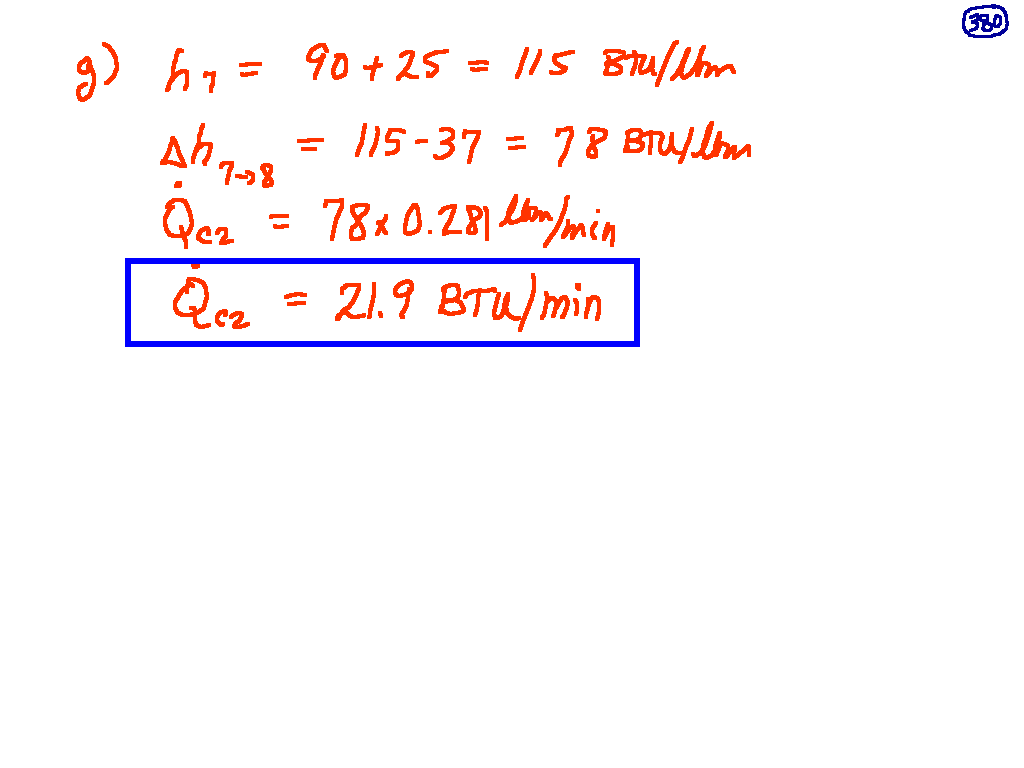 380
g) h₇ = 90 + 25 = 115 BTU/lbm
Δh₇→₈ = 115 - 37 = 78 BTU/lbm
Q̇c2 = 78 x 0.281 lbm/min
Q̇c2 = 21.9 BTU/min